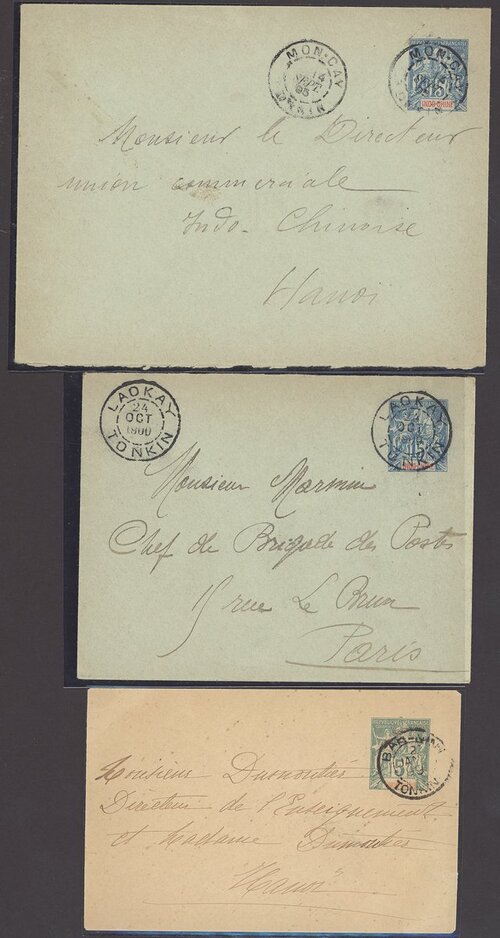 MON-CAY
14
SEPT.
95
TONKIN
RÉPUBLIQUE FRANÇAISE
MON-CAY
15
INDO-CHINE
Monsieur le Directeur
union commerciale
Indo-Chinoise
Hanoi
LAOKAY
24
OCT
1900
TONKIN
LAOKAY
24
OCT
TONKIN
Monsieur
Chef de Brigade des Postes
15 rue Le Brun
Paris
RÉPUBLIQUE FRANÇAISE
12
JAN
5
TONKIN
Monsieur Dumoutier
Directeur de l'Enseignement
et Madame Dumoutier
"Hanoi"